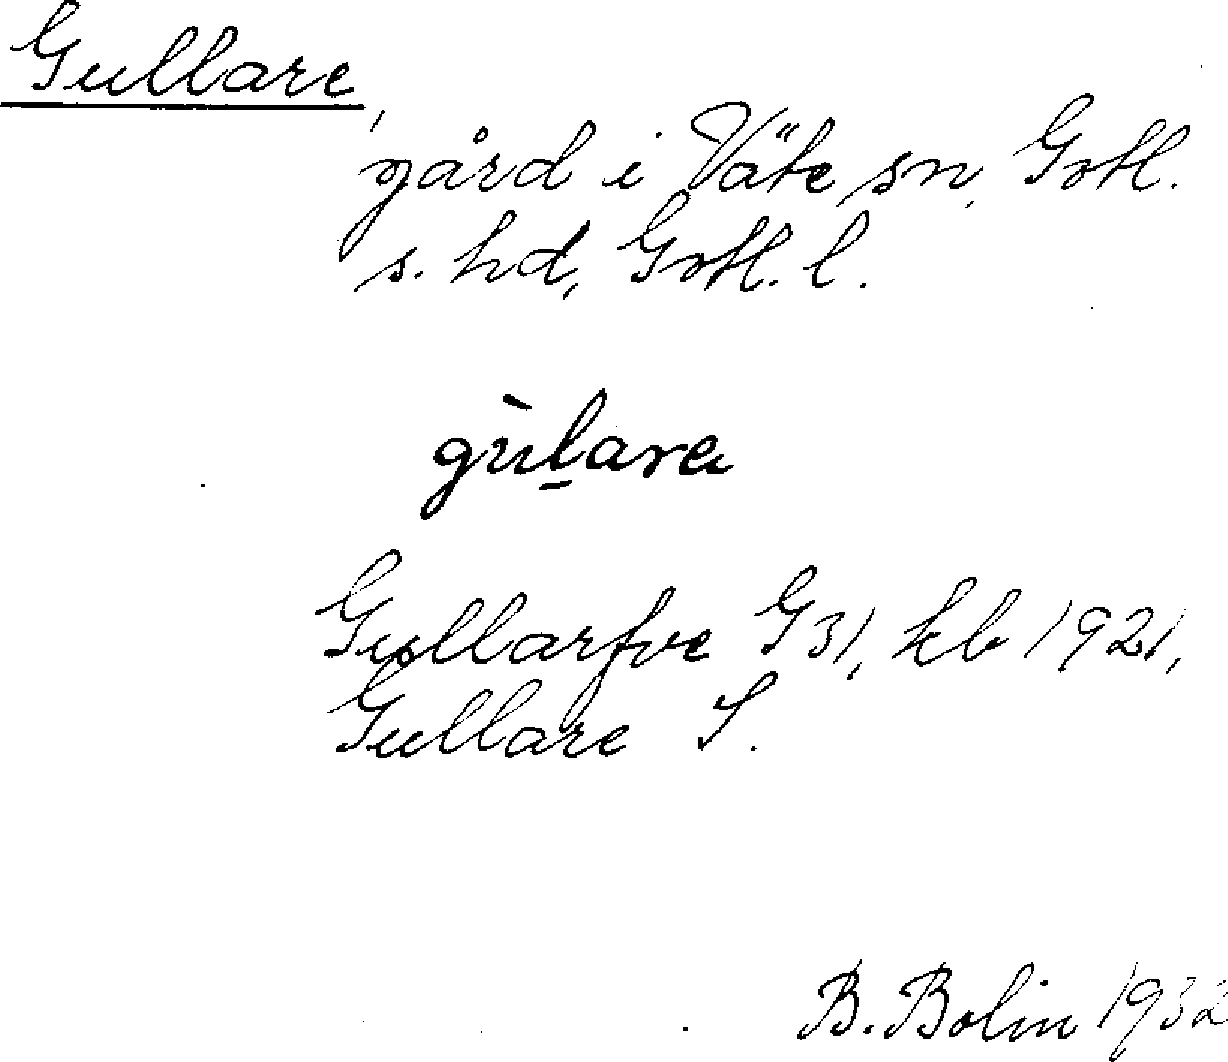 Gullare,
gård i Väte sn, Gotl.
s. hd, Gotl. l.
gùḻara
Gullarfve G31, kb 1921,
Gullare S.
B. Bolin 1932